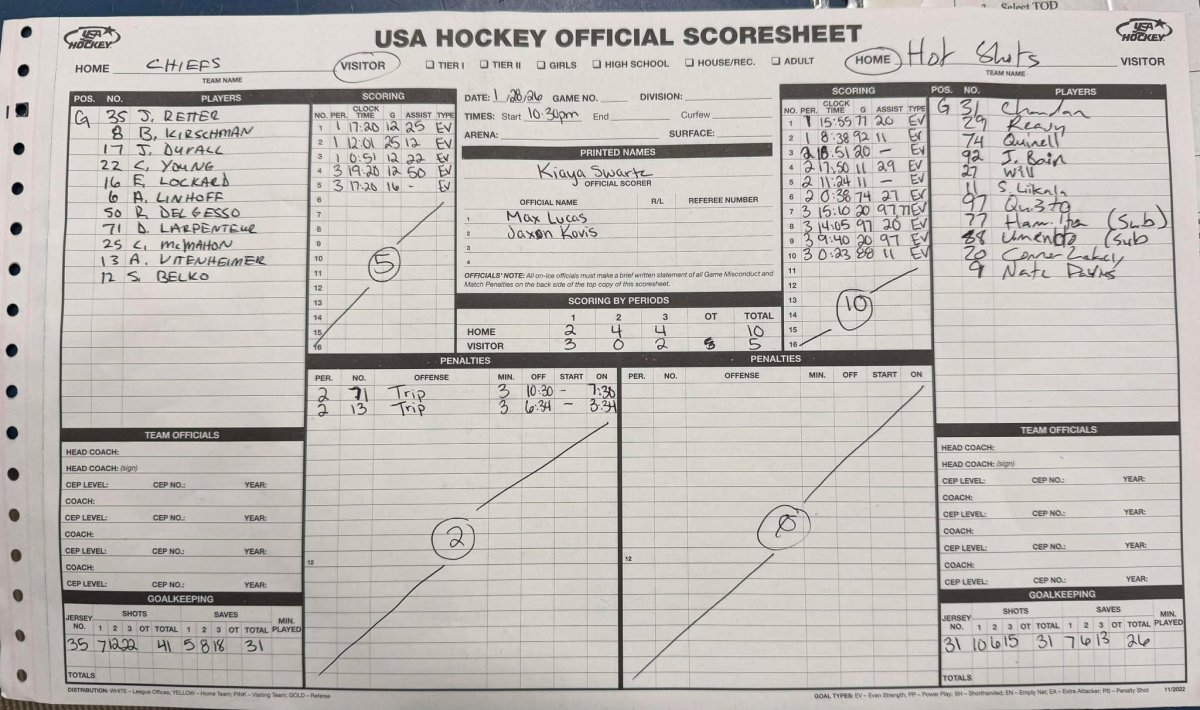 Select TOD
USA HOCKEY
USA HOCKEY OFFICIAL SCORESHEET
USA HOCKEY
HOME CHIEFS VISITOR
TEAM NAME
TIER I TIER II GIRLS HIGH SCHOOL HOUSE/REC. ADULT
HOME Hot Shots VISITOR
TEAM NAME
POS. NO. PLAYERS
G 35 J. RETTER
8 B. KIRSCHMAN
17 J. DUVALL
22 C. YOUNG
16 E. LOCKARD
6 A. LINHOFF
50 R. DELGESSO
71 D. LARPENTEUR
25 C. McMAHON
13 A. VITENHEIMER
12 S. BELKO
SCORING
NO. PER. CLOCK TIME G ASSIST TYPE
1 1 17:20 12 25 EV
2 1 12:01 25 12 EV
3 1 0:51 12 22 EV
4 3 19:20 12 50 EV
5 3 17:20 16 - EV
6
7
8
9
10
11
12
13
14
15
16
5
DATE: 1/28/26 GAME NO. DIVISION:
TIMES: Start 10:30pm End Curfew
ARENA: SURFACE:
PRINTED NAMES
Kiaya Swartz
OFFICIAL SCORER
OFFICIAL NAME R/L REFEREE NUMBER
1 Max Lucas
2 Jaxon Kovis
3
4
OFFICIALS' NOTE: All on-ice officials must make a brief written statement of all Game Misconduct and
Match Penalties on the back side of the top copy of this scoresheet.
SCORING BY PERIODS
1 2 3 OT TOTAL
HOME 2 4 4 10
VISITOR 3 0 2 5
SCORING
NO. PER. CLOCK TIME G ASSIST TYPE
1 1 15:55 77 20 EV
2 1 8:38 92 11 EV
3 2 18:51 20 - EV
4 2 17:50 11 29 EV
5 2 11:24 11 - EV
6 2 0:38 74 27 EV
7 3 15:10 20 97,77 EV
8 3 14:05 97 20 EV
9 3 9:40 20 97 EV
10 3 0:23 88 11 EV
11
12
13
14
15
16
10
POS. NO. PLAYERS
G 31
29 Reavy
74 Quinell
92 J. Bain
27 Will
11 S. Liikala
97
77 (Sub)
88 (Sub
20 Conner
9 Nate
PENALTIES
PER. NO. OFFENSE MIN. OFF START ON
2 71 Trip 3 10:30 - 7:30
2 13 Trip 3 6:34 - 3:34
12
2
PENALTIES
PER. NO. OFFENSE MIN. OFF START ON
12
0
TEAM OFFICIALS
HEAD COACH:
HEAD COACH: (sign)
CEP LEVEL: CEP NO.: YEAR:
COACH:
CEP LEVEL: CEP NO.: YEAR:
COACH:
CEP LEVEL: CEP NO.: YEAR:
COACH:
CEP LEVEL: CEP NO.: YEAR:
GOALKEEPING
JERSEY NO. SHOTS 1 2 3 OT TOTAL SAVES 1 2 3 OT TOTAL MIN. PLAYED
35 7 12 22 41 5 8 18 31
TOTALS
TEAM OFFICIALS
HEAD COACH:
HEAD COACH: (sign)
CEP LEVEL: CEP NO.: YEAR:
COACH:
CEP LEVEL: CEP NO.: YEAR:
COACH:
CEP LEVEL: CEP NO.: YEAR:
COACH:
CEP LEVEL: CEP NO.: YEAR:
GOALKEEPING
JERSEY NO. SHOTS 1 2 3 OT TOTAL SAVES 1 2 3 OT TOTAL MIN. PLAYED
31 10 6 15 31 7 6 13 26
TOTALS
DISTRIBUTION: WHITE – League Offices; YELLOW – Home Team; PINK – Visiting Team; GOLD – Referee
GOAL TYPES: EV – Even Strength; PP – Power Play; SH – Shorthanded; EN – Empty Net; EA – Extra Attacker; PS – Penalty Shot 11/2022